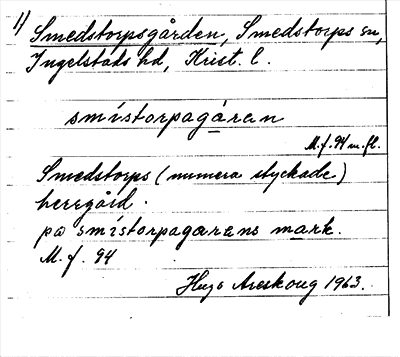 1) Smedstorpsgården, Smedstorps sn,
Ingelstads hd, Krist. l.
smístorpagáran
M. f. 94 m. fl.
Smedstorps (numera styckade)
herrgård.
pa smístorpagarans mark.
M. f. 94
Hugo Areskoug 1963.